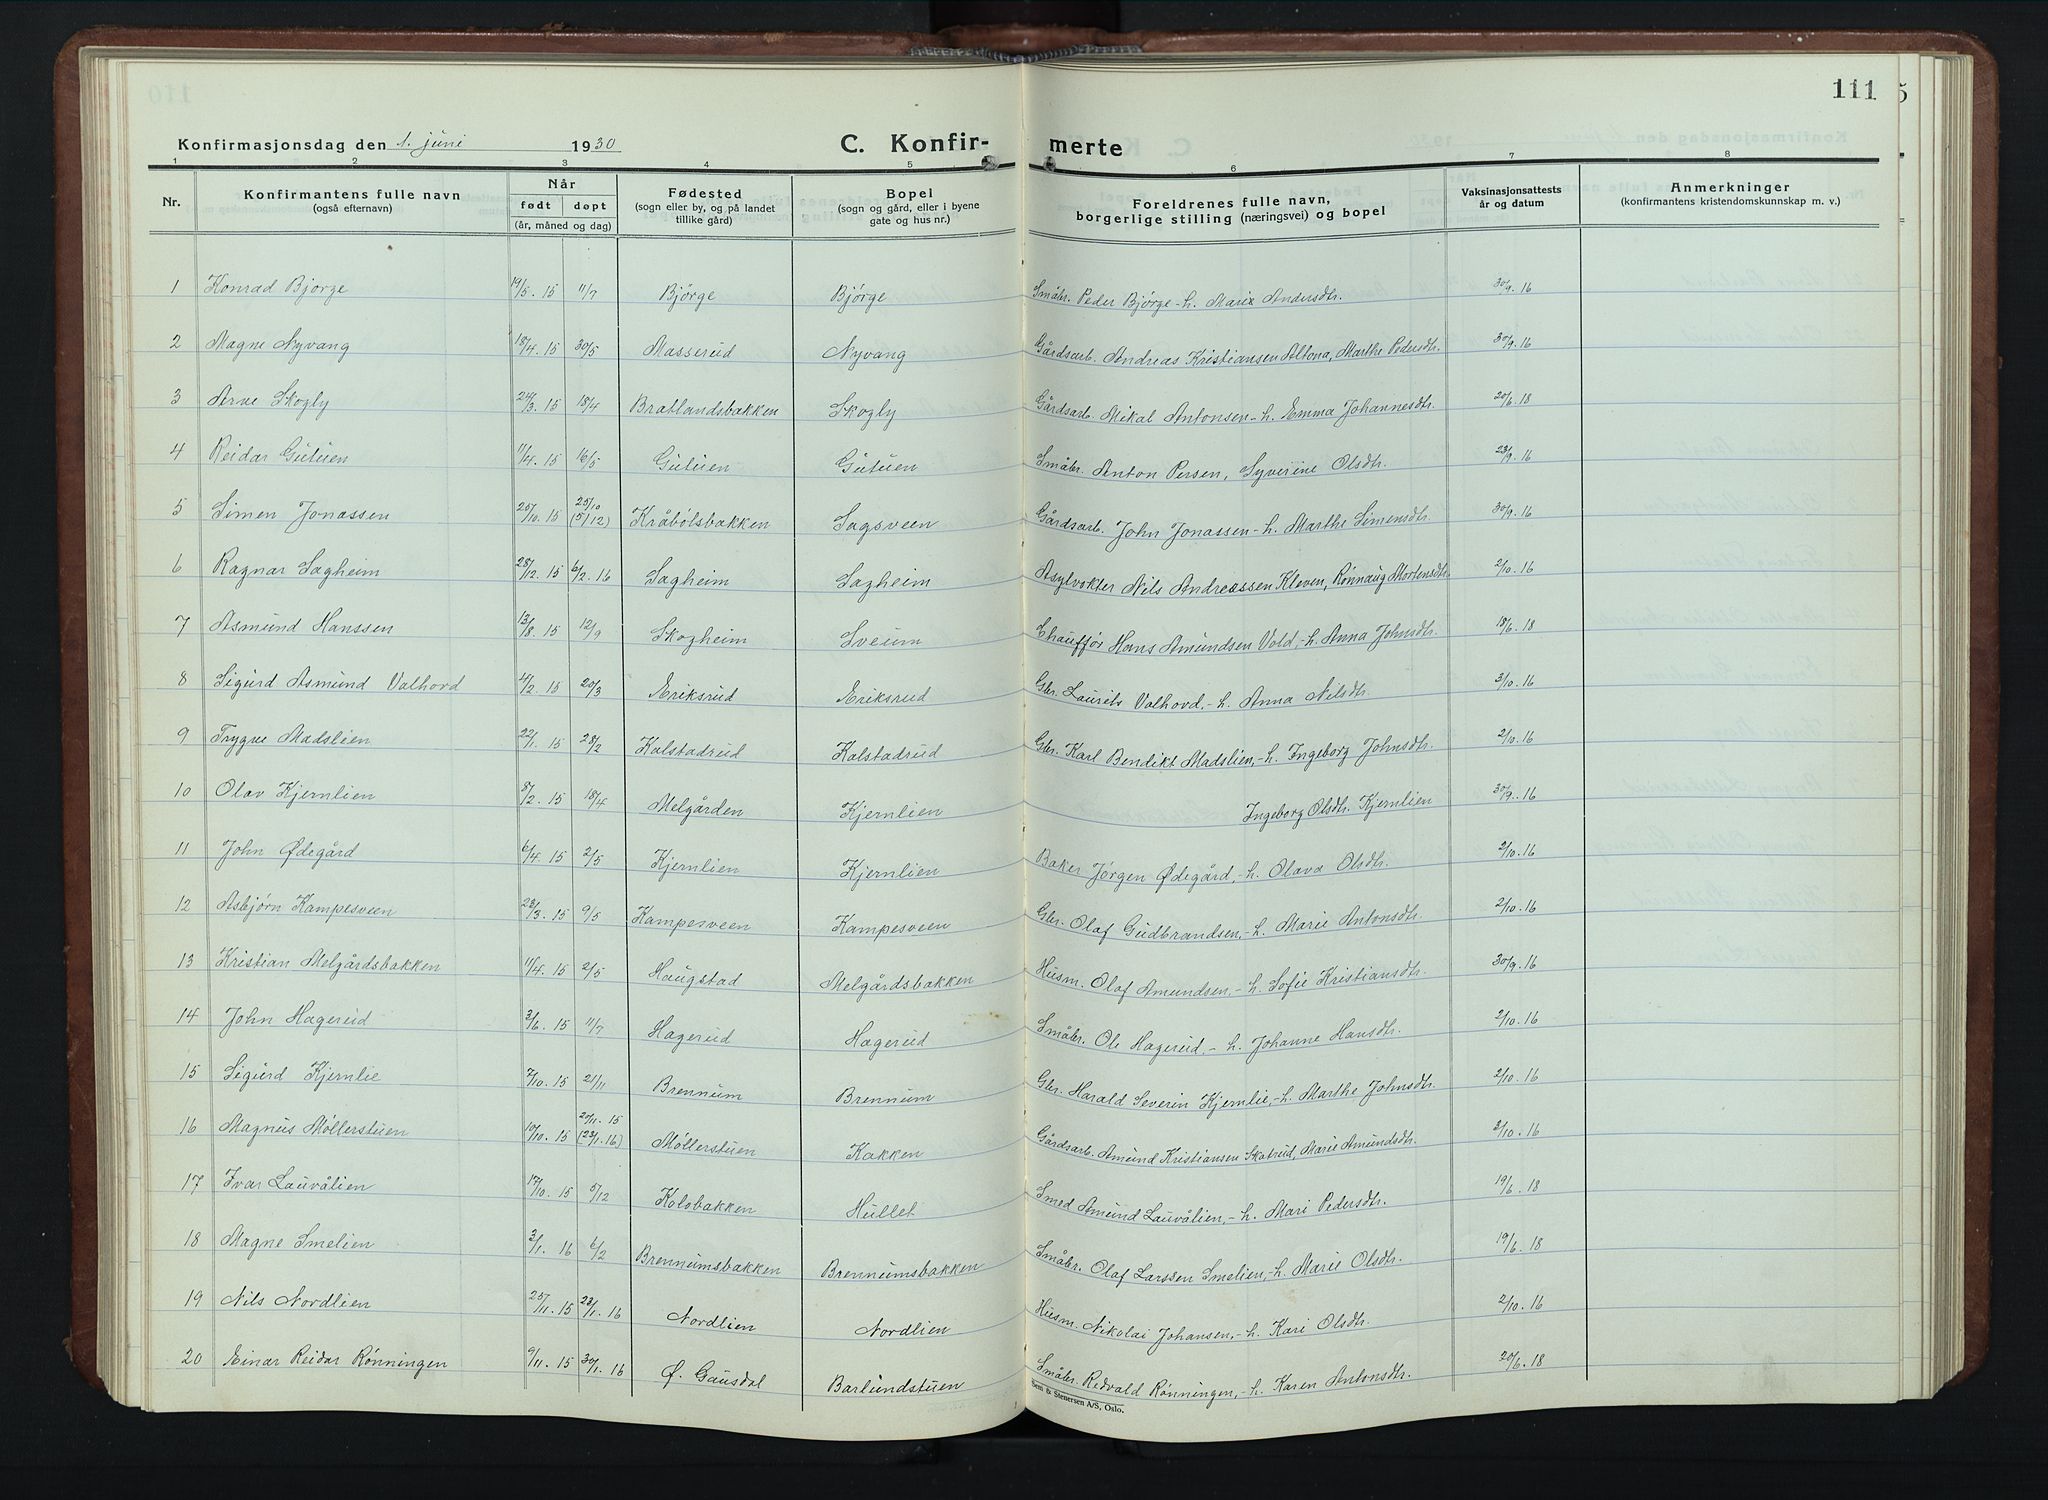 111
Konfirmasjonsdag den 1. juni 1930 C. Konfir- merte
1 2 3 4 5 6 7 8
Nr. Konfirmantens fulle navn (også efternavn) Når født døpt (år, måned og dag) Fødested (sogn eller by, og på landet tillike gård) Bopel (sogn og gård, eller i byene gate og hus nr.) Foreldrenes fulle navn, borgerlige stilling (næringsvei) og bopel Vaksinasjonsattests år og datum Anmerkninger (konfirmantens kristendomskunnskap m. v.)
1 Konrad Bjørge 19/5. 15 11/7 Bjørge Bjørge Småbr. Peder Bjørge - h. Marie Andersdtr. 30/9. 16
2 Magne Nyvang 18/4. 15 30/5 Masserud Nyvang Gårdsarb. Andreas Kristiansen Altona, Marthe Pedersdtr. 30/9. 16
3 Arve Skogly 24/3. 15 18/4 Bratlandsbakken Skogly Gårdsarb. Mikal Antonsen - h. Emma Johannesdtr. 20/6. 18
4 Reidar Gutuen 11/4. 15 16/5 Gutuen Gutuen Småbr. Anton Persen, Syverine Olsdtr. 23/9. 16
5 Simen Jonassen 25/10. 15 25/10 (5/12) Kråbølsbakken Sagsveen Gårdsarb. John Jonassen - h. Marthe Simensdtr. 30/9. 16
6 Ragnar Sagheim 28/12. 15 6/2. 16 Sagheim Sagheim Asylvokter Nils Andreassen Kleven, Rønnaug Mortensdtr. 2/10. 16
7 Asmund Hanssen 13/8. 15 12/9 Skogheim Sveum Chauffør Hans Amundsen Vold, - h. Anna Johnsdtr. 18/6. 18
8 Sigurd Asmund Valhord 4/2. 15 20/3 Eriksrud Eriksrud Gbr. Laurits Valhovd, - h. Anna Nilsdtr. 3/10. 16
9 Trygve Madslien 22/1. 15 28/2 Kalstadrud Kalstadrud Gbr. Karl Bendikt Madslien, - h. Ingeborg Johnsdtr. 2/10. 16
10 Olav Kjernlien 8/2. 15 18/4 Melgården Kjernlien Ingeborg Olsdtr. Kjernlien 30/9. 16
11 John Ødegård 6/4. 15 2/5 Kjernlien Kjernlien Baker Jørgen Ødegård, - h. Olava Olsdtr. 2/10. 16
12 Asbjørn Kampesveen 23/3. 15 9/5 Kampesveen Kampesveen Gbr. Olaf Gudbrandsen, - h. Marie Antonsdtr. 2/10. 16
13 Kristian Melgårdsbakken 11/4. 15 2/5 Haugstad Melgårdsbakken Husm. Olaf Amundsen, - h. Sofie Kristiansdtr. 30/9. 16
14 John Hagerud 3/6. 15 11/7 Hagerud Hagerud Småbr. Ole Hagerud, - h. Johanne Hansdtr. 2/10. 16
15 Sigurd Kjernlie 7/10. 15 21/11 Brennum Brennum Gbr. Harald Severin Kjernlie, - h. Marthe Johnsdtr. 2/10. 16
16 Magnus Møllerstuen 10/10. 15 20/11. 15 (23/1. 16) Møllerstuen Kakken Gårdsarb. Amund Kristiansen Skatrud, Marie Amundsdtr. 3/10. 16
17 Ivar Lauvålien 17/10. 15 5/12 Kolobakken Hullet Smed Amund Lauvålien, - h. Mari Pedersdtr. 19/6. 18
18 Magne Smelien 3/1. 16 6/2 Brennumsbakken Brennumsbakken Småbr. Olaf Larssen Smelien, - h. Marie Olsdtr. 19/6. 18
19 Nils Nordlien 25/11. 15 23/1. 16 Nordlien Nordlien Husm. Nikolai Johansen, - h. Kari Olsdtr. 2/10. 16
20 Einar Reidar Rønningen 9/11. 15 30/1. 16 Ø. Gausdal Barlundstuen Småbr. Redvald Rønningen, - h. Karen Antonsdtr. 20/6. 18
Sem & Stenersen A/S, Oslo.